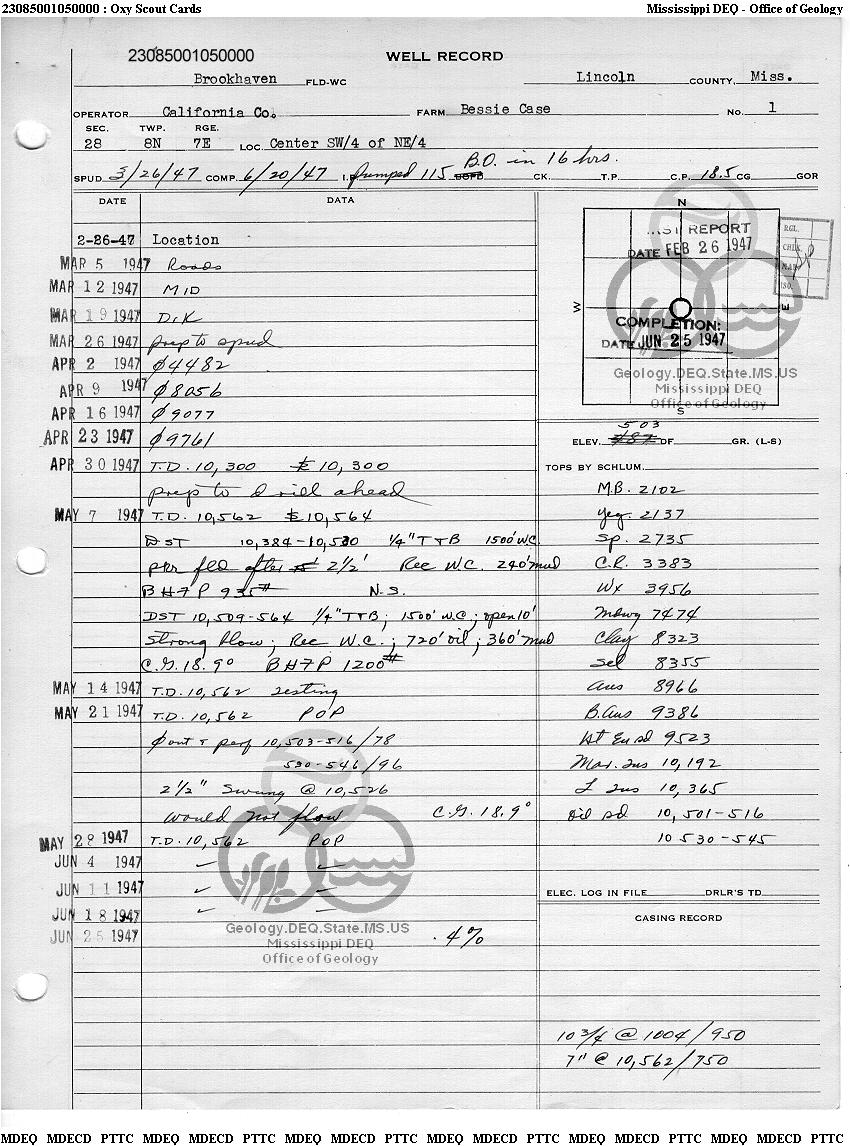 23085001050000 : Oxy Scout Cards Mississippi DEQ - Office of Geology
23085001050000
WELL RECORD
Brookhaven FLD-WC Lincoln COUNTY, Miss.
OPERATOR California Co. FARM Bessie Case NO. 1
SEC. TWP. RGE.
28 8N 7E LOC. Center SW/4 of NE/4
SPUD 3/26/47 COMP. 6/20/47 I.P. Pumped 115 B.O. in 16 hrs. CK. T.P. C.P. 18.5 CG GOR
DATE DATA
2-26-47 Location
MAR 5 1947 Roads
MAR 12 1947 MID
MAR 19 1947 DIK
MAR 26 1947 prep to spud
APR 2 1947 ∅4482
APR 9 1947 ∅8056
APR 16 1947 ∅9077
APR 23 1947 ∅9761
APR 30 1947 T.D. 10,300 £ 10,300
prep to drill ahead
MAY 7 1947 T.D. 10,562 £10,564
DST 10,384-10,530 1/4" T&B 1500' W.C.
fld after 2 1/2' Rec W.C. 240' mud
BHFP 935# N.S.
DST 10,509-564 1/4" T&B; 1500' W.C.; open 10'
Strong blow; Rec W.C.; 720' oil; 360' mud
C.G. 18.9° BHFP 1200#
MAY 14 1947 T.D. 10,562 testing
MAY 21 1947 T.D. 10,562 POP
∅ & perf 10,503-516/78
530-546/96
2 1/2" Swung @ 10,526
would not flow C.G. 18.9°
MAY 28 1947 T.D. 10,562 POP
JUN 4 1947
JUN 11 1947
JUN 18 1947
JUN 25 1947 .4%
N
W
E
S
REPORT
DATE FEB 26 1947
COMPLETION:
DATE JUN 25 1947
RGL.
CHDK.
MAP
ISO.
Geology.DEQ.State.MS.US
Mississippi DEQ
Office of Geology
503
ELEV. 487 DF GR. (L-S)
TOPS BY SCHLUM.
M.B. 2102
Yeg. 2137
Sp. 2735
C.R. 3383
Wx 3956
Mdwy 7474
Clay 8323
Sel 8355
Aus 8966
B.Aus 9386
Ut Eu sd 9523
Mar. Tus 10,192
L Tus 10,365
Oil sd 10,501-516
10 530-545
ELEC. LOG IN FILE DRLR'S TD
CASING RECORD
10 3/4 @ 1004/950
7" @ 10,562/750
Geology.DEQ.State.MS.US
Mississippi DEQ
Office of Geology
MDEQ MDECD PTTC MDEQ MDECD PTTC MDEQ MDECD PTTC MDEQ MDECD PTTC MDEQ MDECD PTTC MDEQ MDECD PTTC